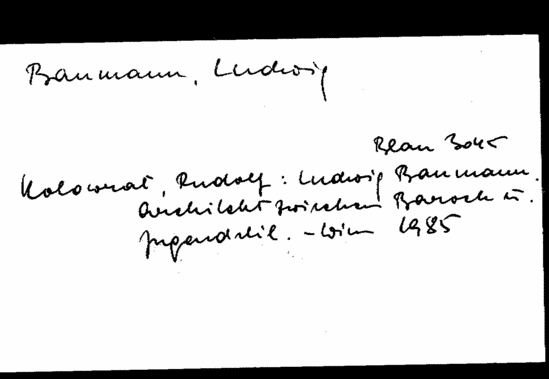 Baumann, Ludwig
Blau
Kolowrat, Rudolf: Ludwig Baumann.
Architekt zwischen Barock u.
Jugendstil. - Wien 1985